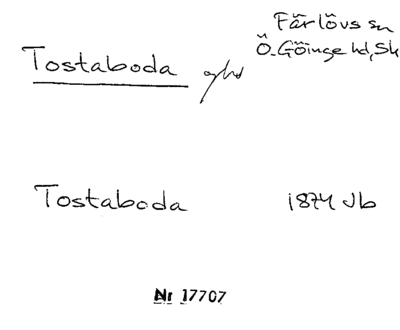 Färlövs sn
Tostaboda ghd Ö. Göinge hd, Sk
Tostaboda 1874 Jb
Nr 17707